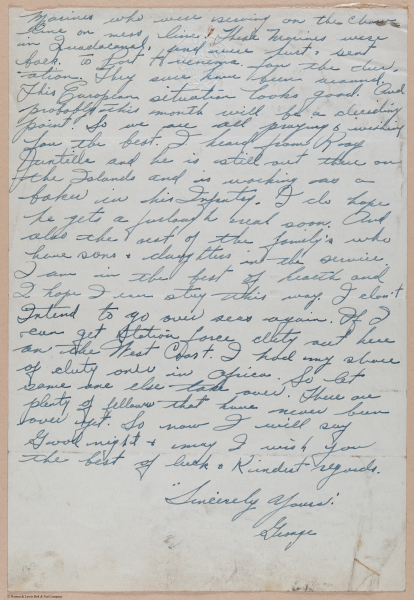 Marines who were serving on the Chow
line or mess line. These Marines were
in Guadacanal, and were hurt & sent
back to Port Hueneme for the dur
ation. They sure have been around.
This European situation looks good. And
probably this month will be a deciding
point. So we are all praying & wishing
for the best. I heard from Ray
and he is still out there on
the Islands and is working as a
baker in his Infantry. I do hope
he gets a furlough real soon. And
also the rest of the family's who
have sons & daughters in the service.
I am in the best of health and
I hope I can stay this way. I don't
Intend to go over seas again. If I
can get Station force duty out here
on the West Coast. I had my share
of duty over in Africa. So let
some one else take over. There are
plenty of fellows that have never been
over yet. So now I will say
Good night & may I wish you
the best of luck & Kindest regards.
"Sincerely Yours"
George